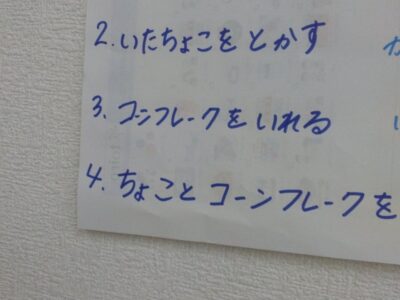 2.いたちょこをとかす
3.コーンフレークをいれる
4.ちょことコーンフレークを